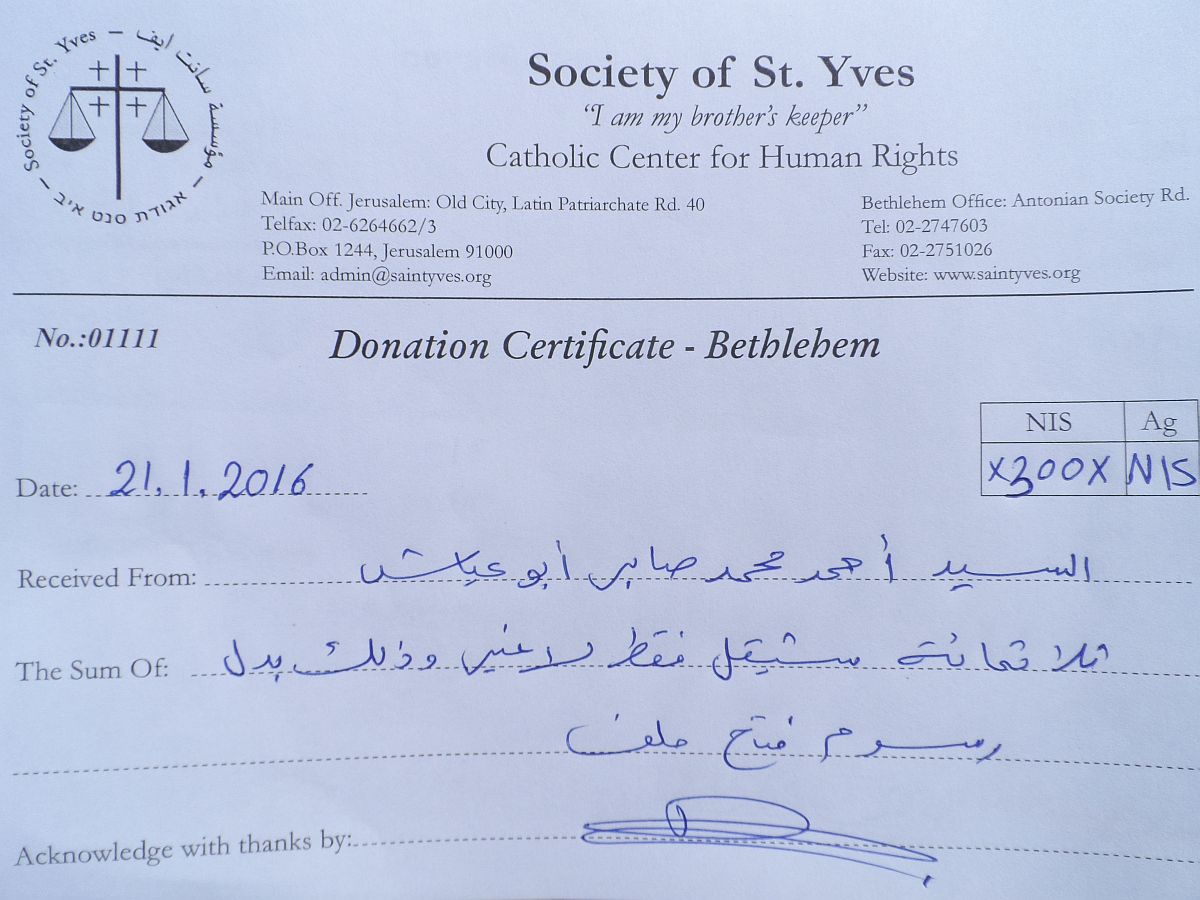 Society of St. Yves – مؤسسة سانت ايف – אגודת סנט איב –
Society of St. Yves
“I am my brother’s keeper”
Catholic Center for Human Rights
Main Off. Jerusalem: Old City, Latin Patriarchate Rd. 40
Telfax: 02-6264662/3
P.O.Box 1244, Jerusalem 91000
Email: admin@saintyves.org
Bethlehem Office: Antonian Society Rd.
Tel: 02-2747603
Fax: 02-2751026
Website: www.saintyves.org
No.:01111
Donation Certificate - Bethlehem
NIS Ag
x300x NIS
Date: 21.1.2016
Received From: السيد أحمد محمد صابر أبو عياش
The Sum Of: ثلاثمائة شيقل فقط لا غير وذلك بدل
رسوم فتح ملف
Acknowledge with thanks by: